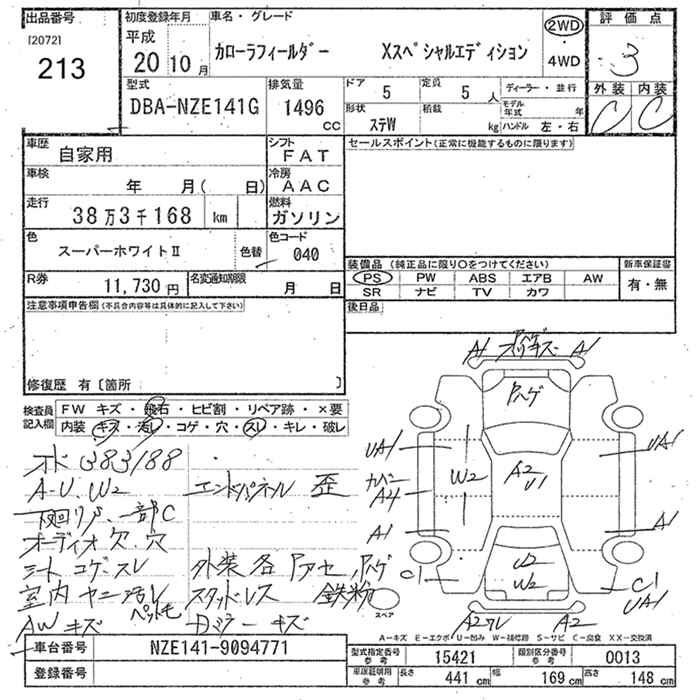 出品番号
[2072]
213
初度登録年月
平成
20 10 月
車名・グレード
カローラフィールダー　Xスペシャルエディション
2WD
・
4WD
評価点
3
外装 内装
C C
型式
DBA-NZE141G
排気量
1496
CC
ドア
5
定員
5 人
ディーラー・並行
形状
ステW
積載
kg
モデル年式 年
ハンドル 左・右
車歴
自家用
シフト
FAT
車検
年 月( 日)
冷房
AAC
走行
38万3千168 km
燃料
ガソリン
色
スーパーホワイトⅡ
色替
色コード
040
R券
11,730 円
名変通知期限
月 日
セールスポイント(正常に機能するものに限ります)
装備品 (純正品に限り○をつけてください)
新車保証書
PS PW ABS エアB AW
SR ナビ TV カワ
有・無
後日品
注意事項申告欄(不具合内容等は具体的に記入して下さい)
修復歴 有〔箇所 〕
検査員
記入欄
FW キズ・飛石・ヒビ割・リペア跡・×要
内装・キズ・汚レ・コゲ・穴・スレ・キレ・破レ
オド 383188
A-U、W2
エンドパネル 歪
下回りサ、一部C
オーディオ欠、穴
シートコゲ、スレ
外装各アセ、ハゲ
室内ヤニ汚レ
スタッドレス
鉄粉
ペットモ
AWキズ
Dミラーキズ
A1
A1
ハゲ
UA1
UA1
W2
A2
U1
カバー
A4
A1
A1
U2
W2
C1
C1
UA1
スペア
A2ワレ
A2
A－キズ E－エクボ U－凹み W－補修跡 S－サビ C－腐食 XX－交換済
車台番号
NZE141-9094771
登録番号
型式指定番号
参考
15421
類別区分番号
参考
0013
車庫証明用
参考
長さ
441 cm
幅
169 cm
高さ
148 cm